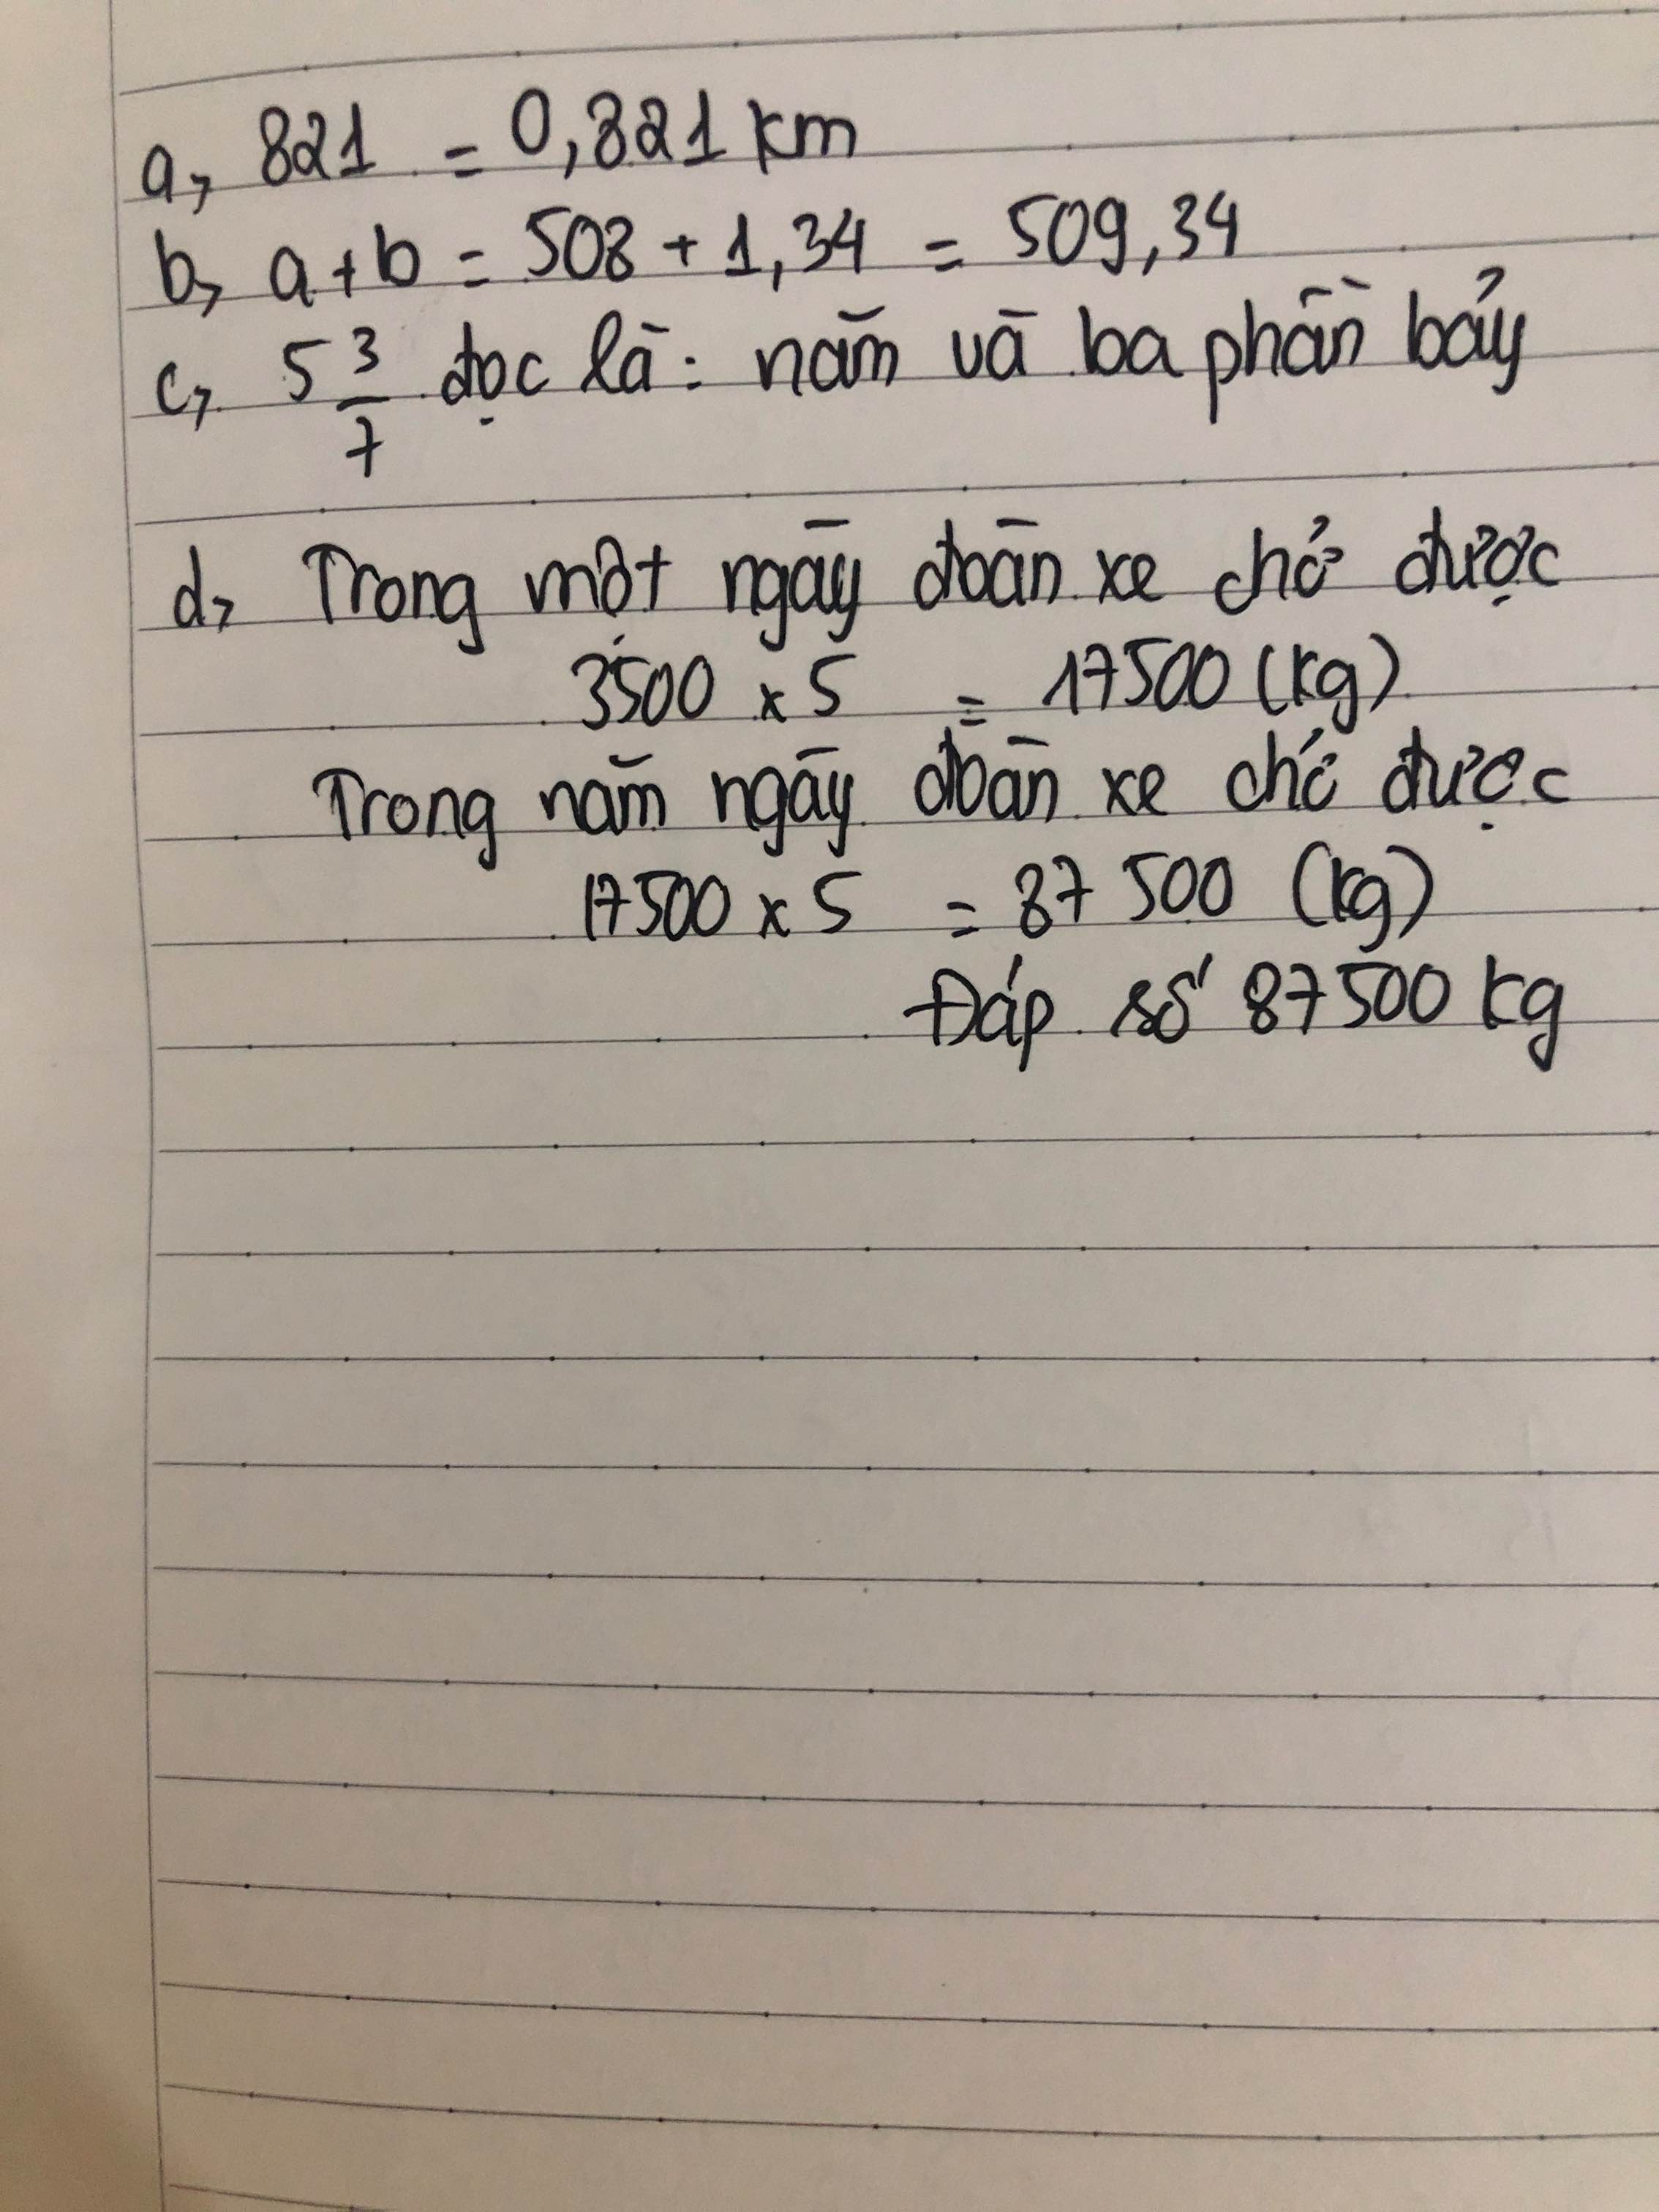 a, 821 = 0,821 km
b, a + b = 508 + 1,34 = 509,34
c, 5 3/7 đọc là: năm và ba phần bảy
d, Trong một ngày đoàn xe chở được
3500 x 5 = 17500 (kg)
Trong năm ngày đoàn xe chở được
17500 x 5 = 87 500 (kg)
Đáp số 87500 kg